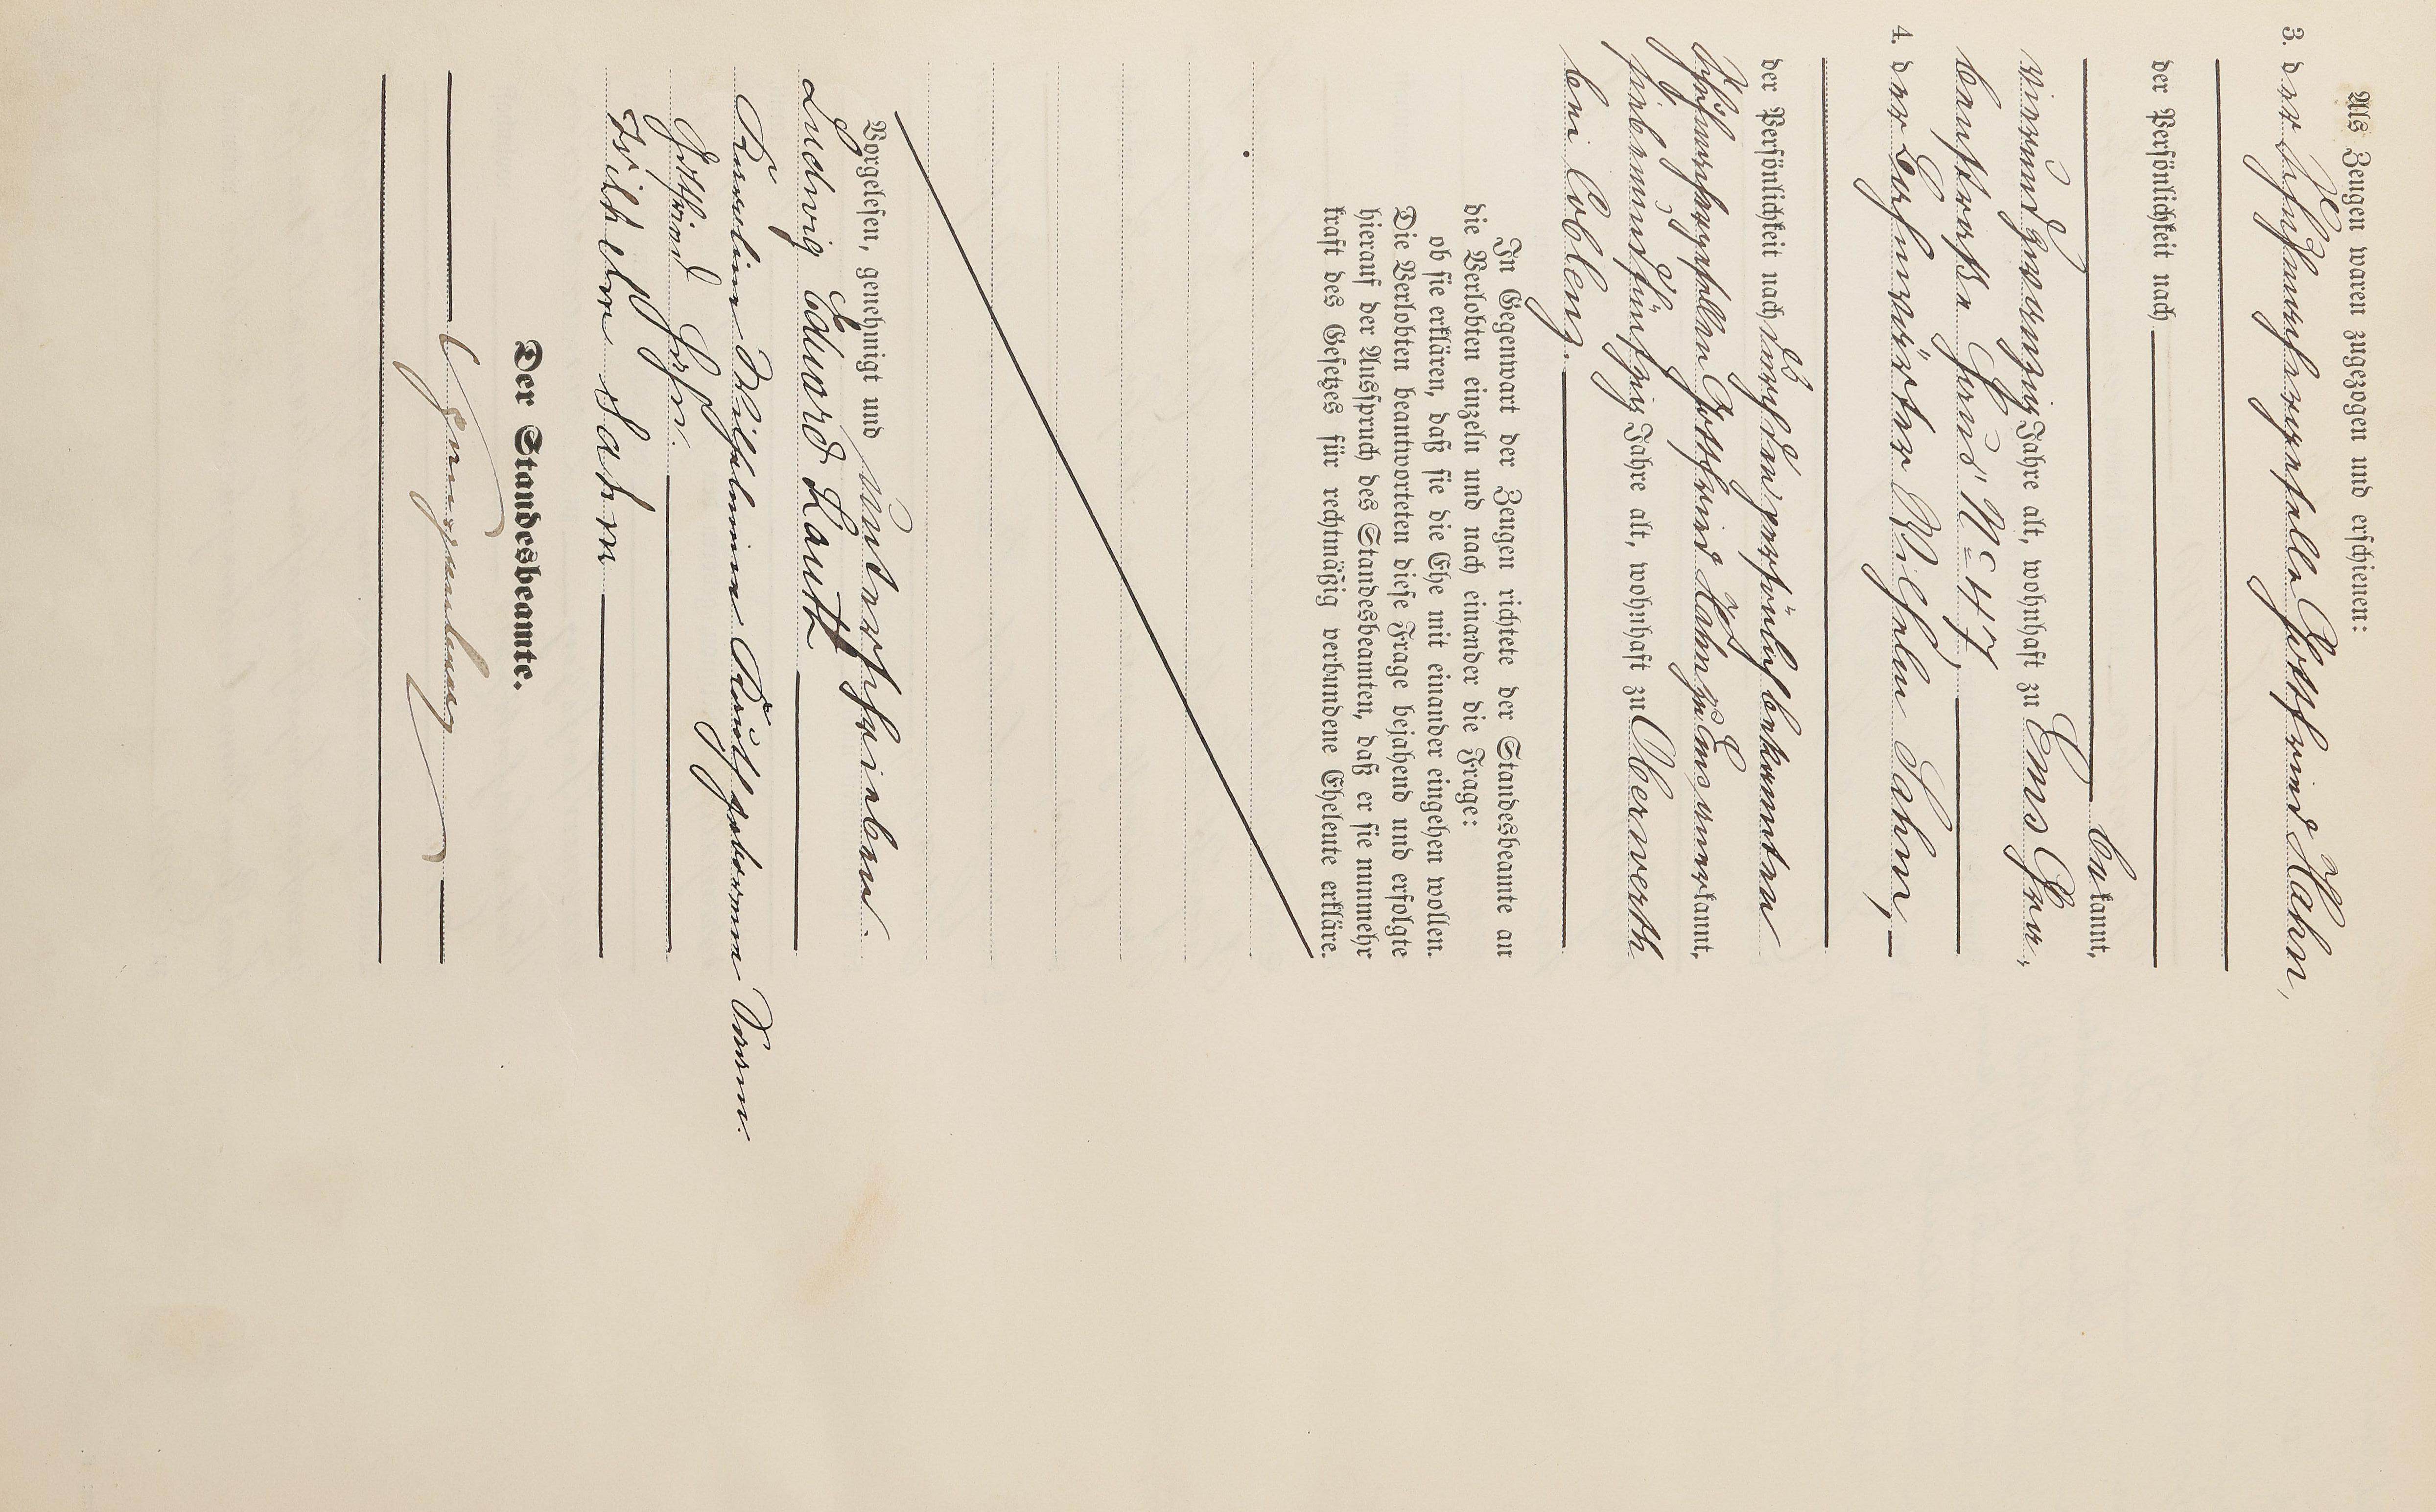 Als Zeugen waren zugezogen und erschienen:
3. der Schuhmachergeselle Gottfried Hahn,
der Persönlichkeit nach
bekannt,
vierundzwanzig Jahre alt, wohnhaft zu Ems Gra-
benstraße Haus No 47,
4. der Wilhelm Sahm,
der Persönlichkeit nach durch den persönlich bekannten
Schuhmachergesellen Gottfried Hahn zu Ems anerkannt,
siebenundfünfzig Jahre alt, wohnhaft zu Oberwerth
bei Coblenz.
In Gegenwart der Zeugen richtete der Standesbeamte an
die Verlobten einzeln und nach einander die Frage:
ob sie erklären, daß sie die Ehe mit einander eingehen wollen.
Die Verlobten beantworteten diese Frage bejahend und erfolgte
hierauf der Ausspruch des Standesbeamten, daß er sie nunmehr
kraft des Gesetzes für rechtmäßig verbundene Eheleute erkläre.
Vorgelesen, genehmigt und unterschrieben.
Ludwig Eduard Lauth
Karoline Wilhelmine Lauth geborene
Gottfried Hahn.
Wilhelm Sahm
Der Standesbeamte.